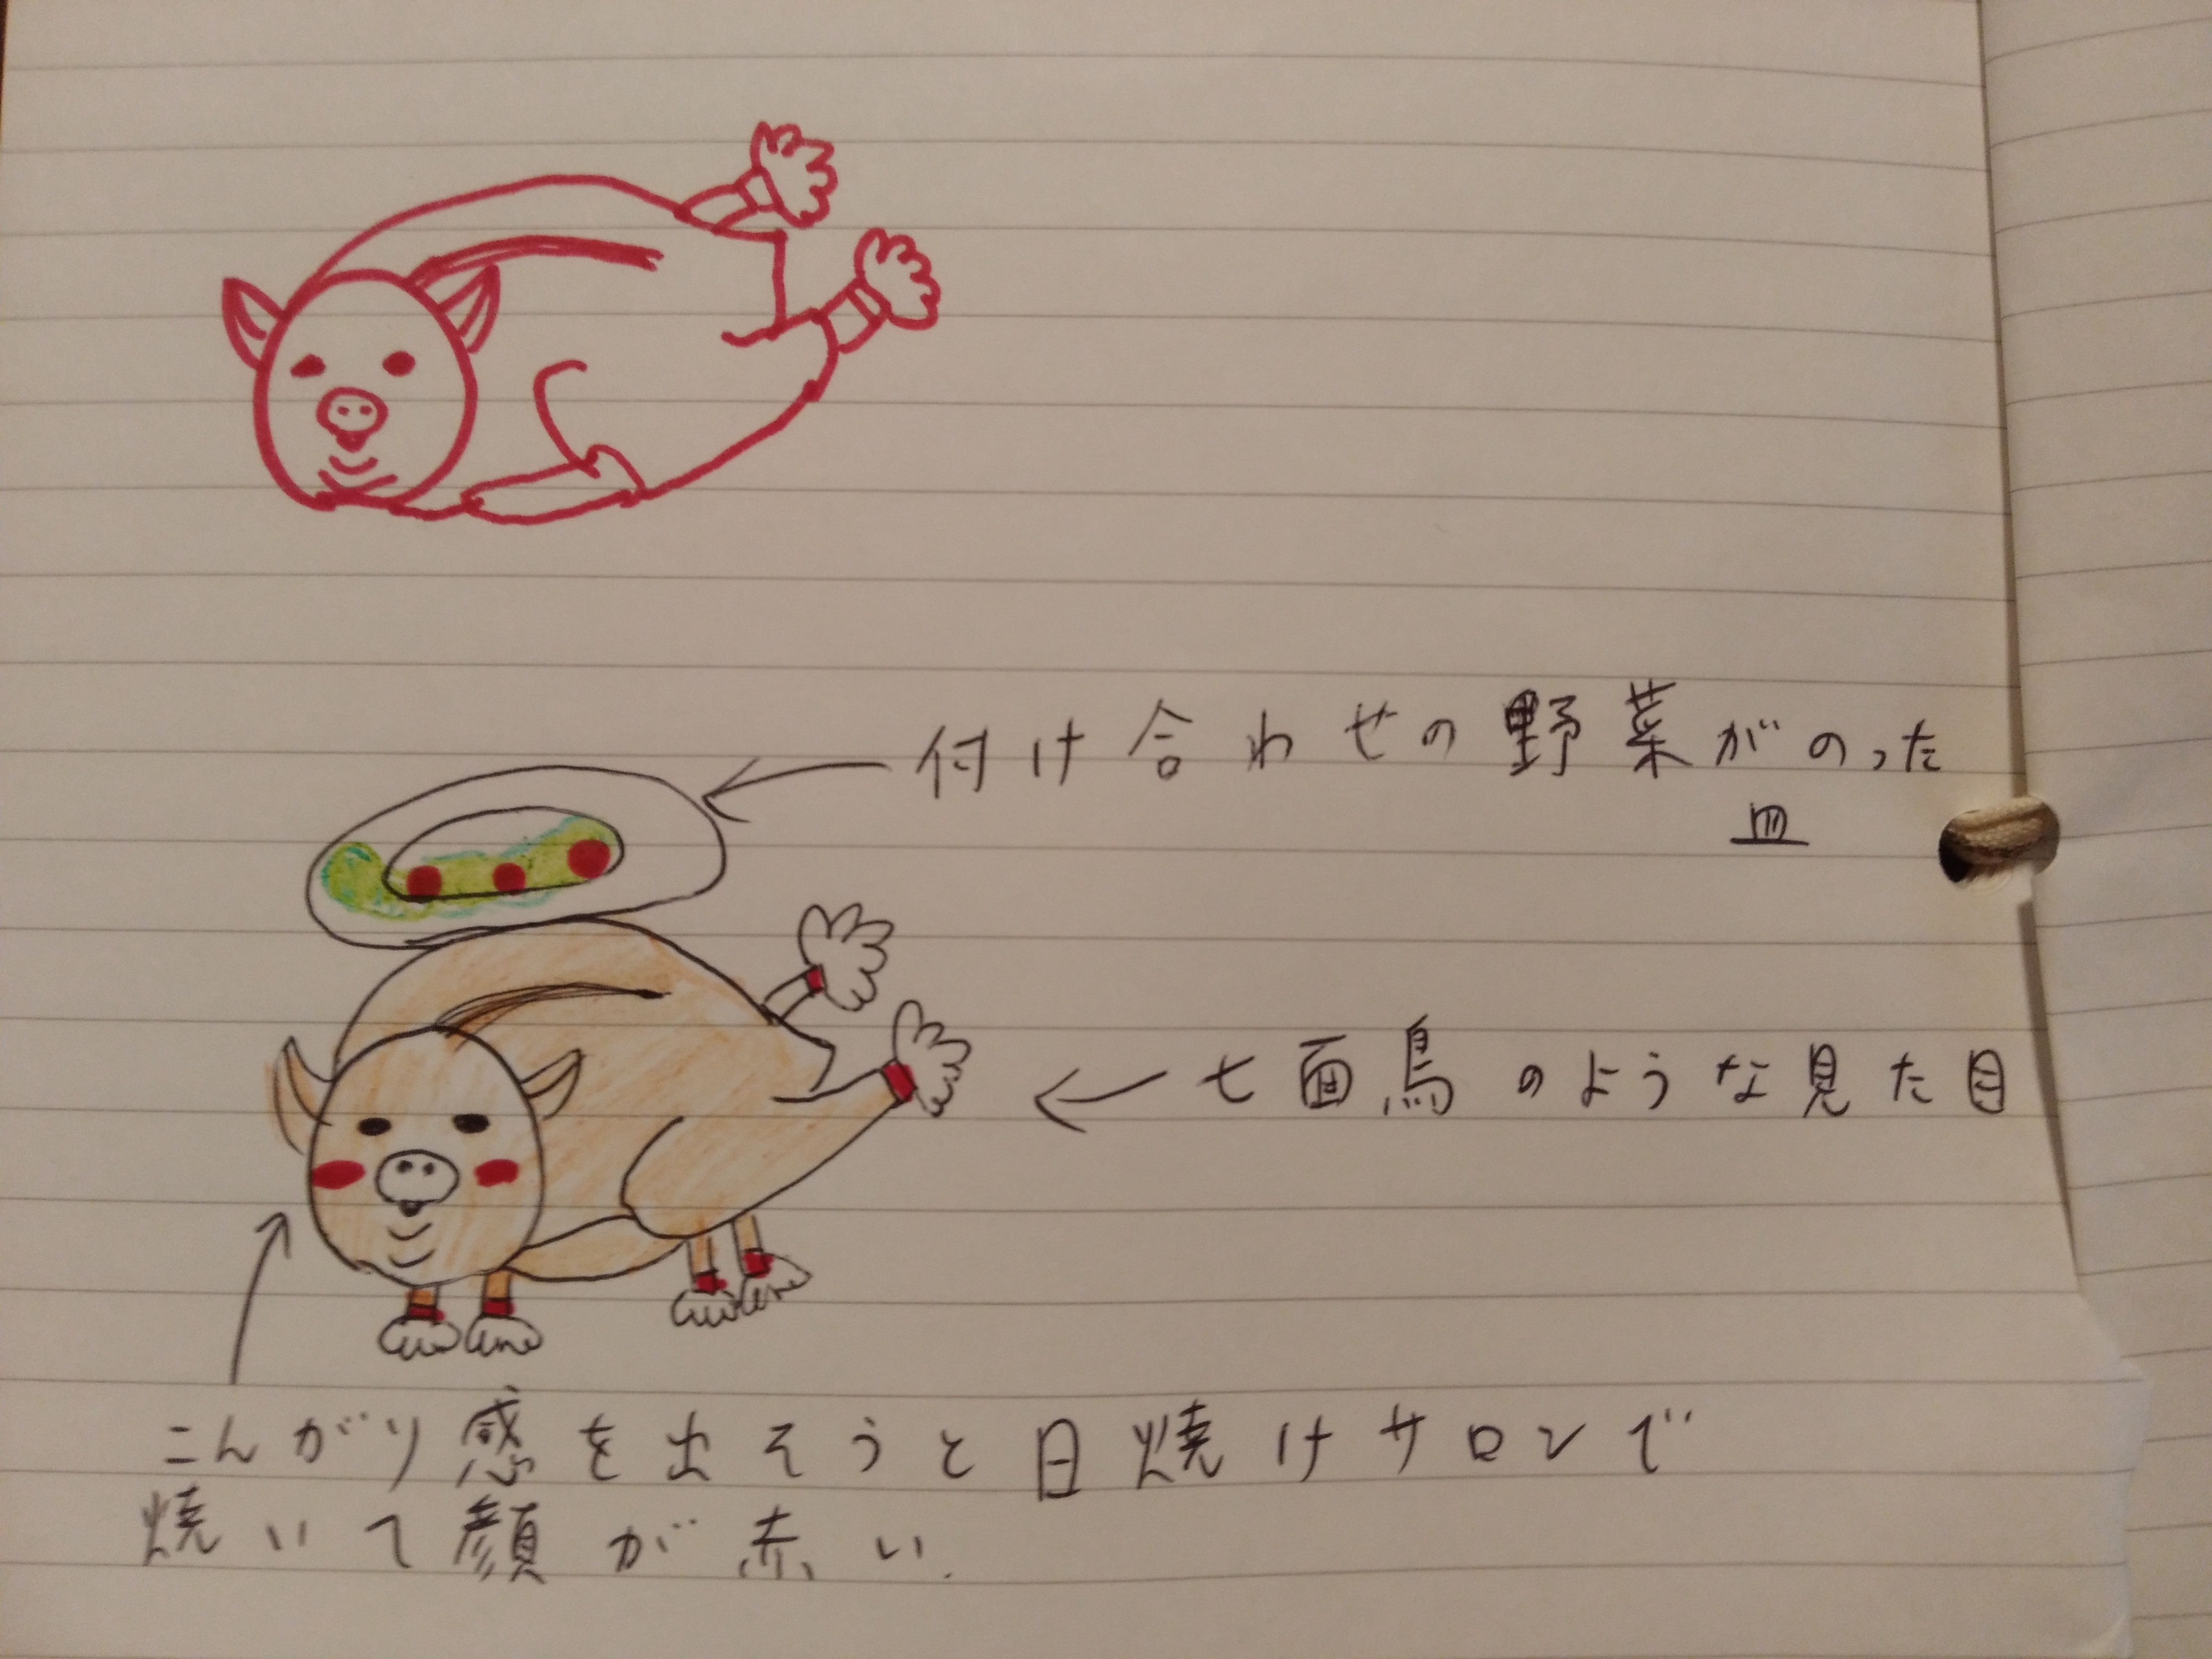 付け合わせの野菜がのった
皿
七面鳥のような見た目
こんがり感を出そうと日焼けサロンで
焼いて顔が赤い.